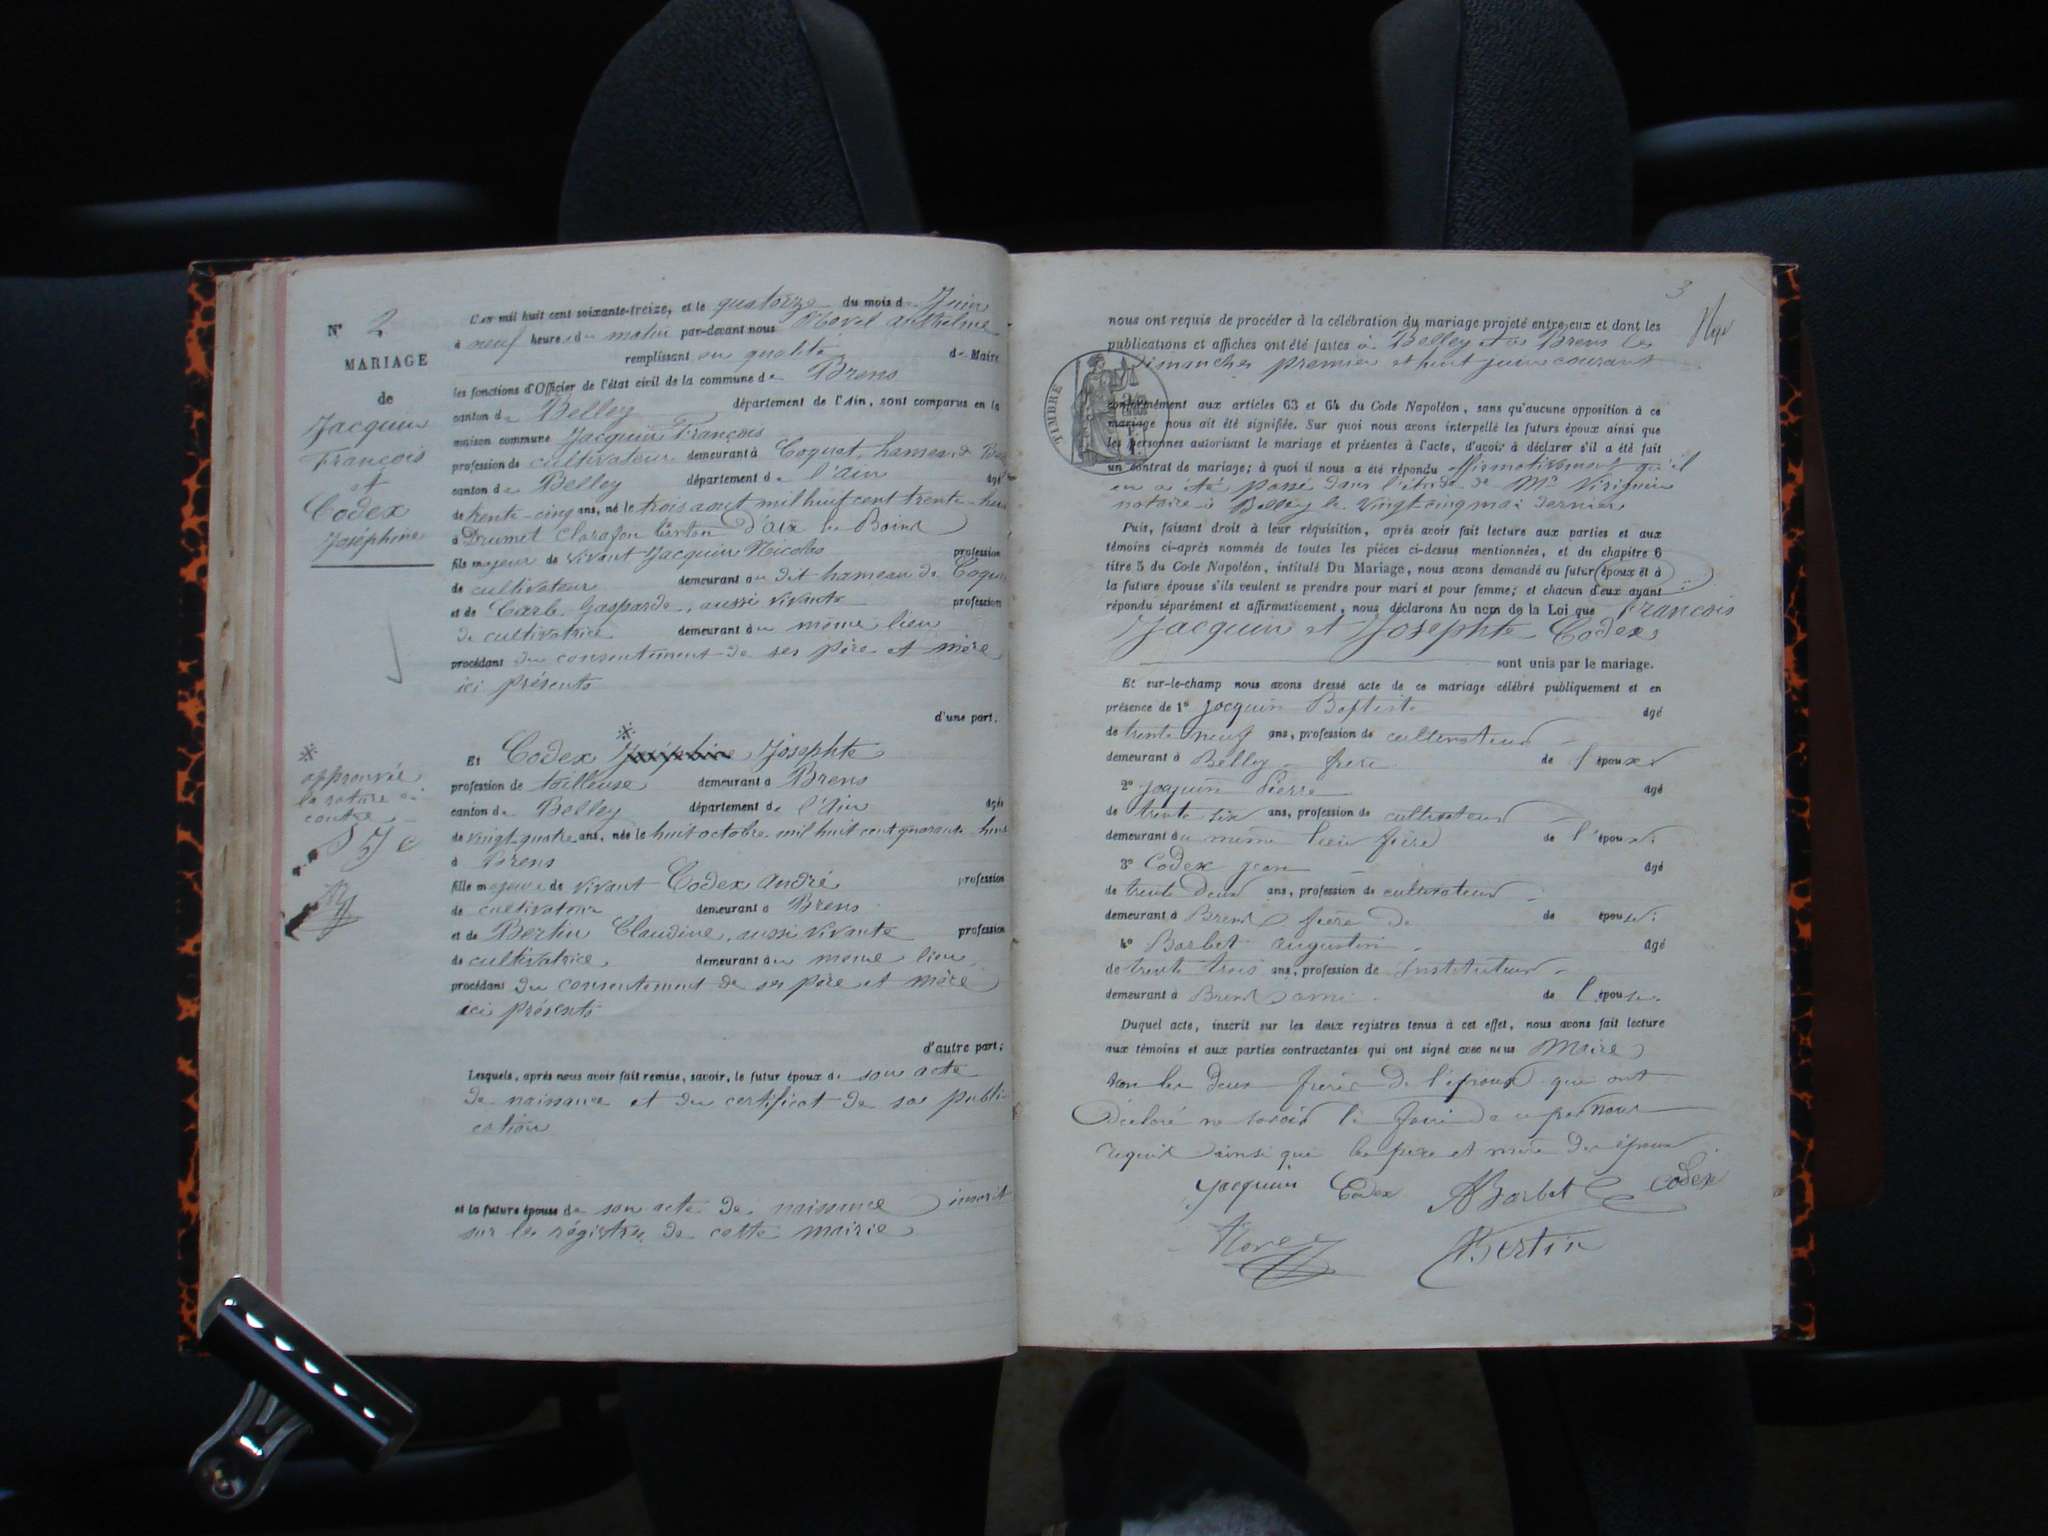 N° 2
MARIAGE
de
Jacquin
François
et
Codex
Josephine
L'an mil huit cent soixante-treize, et le quatorze du mois de Juin
à neuf heures du matin par-devant nous Morel anthelme
remplissant en qualité de Maire
les fonctions d'Officier de l'état civil de la commune de Brens
canton de Belley département de l'Ain, sont comparus en la
maison commune Jacquin François
profession de cultivateur demeurant à Coquet, hameau de
canton de Belley département de l'Ain âgé
de trente-cinq ans, né le trois aout mil huit cent trente-huit
à Drumet Clarafon Canton d'aix les Bains
fils majeur de vivant Jacquin Nicolas profession
de cultivateur demeurant au dit hameau de Coquet
et de Carle Gasparde, aussi vivante profession
de cultivatrice demeurant au même lieu
procédant du consentement de ses père et mère
ici présents
d'une part.
*
Et Codex Joséphine Josephte
profession de tailleuse demeurant à Brens
canton de Belley département de l'Ain âgée
de vingt-quatre ans, née le huit octobre mil huit cent quarante-huit
à Brens
fille majeure de vivant Codex andré profession
de cultivateur demeurant à Brens
et de Bertin Claudine, aussi vivante profession
de cultivatrice demeurant au même lieu
procédant du consentement de ses père et mère
ici présents
d'autre part;
*
approuvée
la rature ci
contre
Lesquels, après nous avoir fait remise, savoir, le futur époux de son acte
de naissance et du certificat de sa publi-
cation
et la future épouse de son acte de naissance inscrit
sur les régistres de cette mairie
3
nous ont requis de procéder à la célébration du mariage projeté entre eux et dont les
publications et affiches ont été faites à Belley et à Brens les
dimanches premier et huit juin courant
TIMBRE
conformément aux articles 63 et 64 du Code Napoléon, sans qu'aucune opposition à ce
mariage nous ait été signifiée. Sur quoi nous avons interpellé les futurs époux ainsi que
les personnes autorisant le mariage et présentes à l'acte, d'avoir à déclarer s'il a été fait
un contrat de mariage; à quoi il nous a été répondu affirmativement qu'il
en a été passé dans l'étude de Me Virignin
notaire à Belley le vingt-cinq mai dernier
Puis, faisant droit à leur réquisition, après avoir fait lecture aux parties et aux
témoins ci-après nommés de toutes les pièces ci-dessus mentionnées, et du chapitre 6
titre 5 du Code Napoléon, intitulé Du Mariage, nous avons demandé au futur époux et à
la future épouse s'ils veulent se prendre pour mari et pour femme; et chacun d'eux ayant
répondu séparément et affirmativement, nous déclarons Au nom de la Loi que François
Jacquin et Josephte Codex
sont unis par le mariage.
Et sur-le-champ nous avons dressé acte de ce mariage célébré publiquement et en
présence de 1° Jacquin Baptiste âgé
de trente neuf ans, profession de cultivateur
demeurant à Belley frère de l'époux
2° Jacquin Pierre âgé
de trente six ans, profession de cultivateur
demeurant au même lieu frère de l'époux
3° Codex jean âgé
de trente deux ans, profession de cultivateur
demeurant à Brens frère de de épouse
4° Barbet augustin âgé
de trente trois ans, profession de instituteur
demeurant à Brens ami de l'épouse
Duquel acte, inscrit sur les deux registres tenus à cet effet, nous avons fait lecture
aux témoins et aux parties contractantes qui ont signé avec nous Maire
non les deux frères de l'époux qui ont
déclaré ne savoir le faire de ce par nous
requis ainsi que les père et mère de époux
Jacquin Codex ABarbet Codex
Morel Bertin